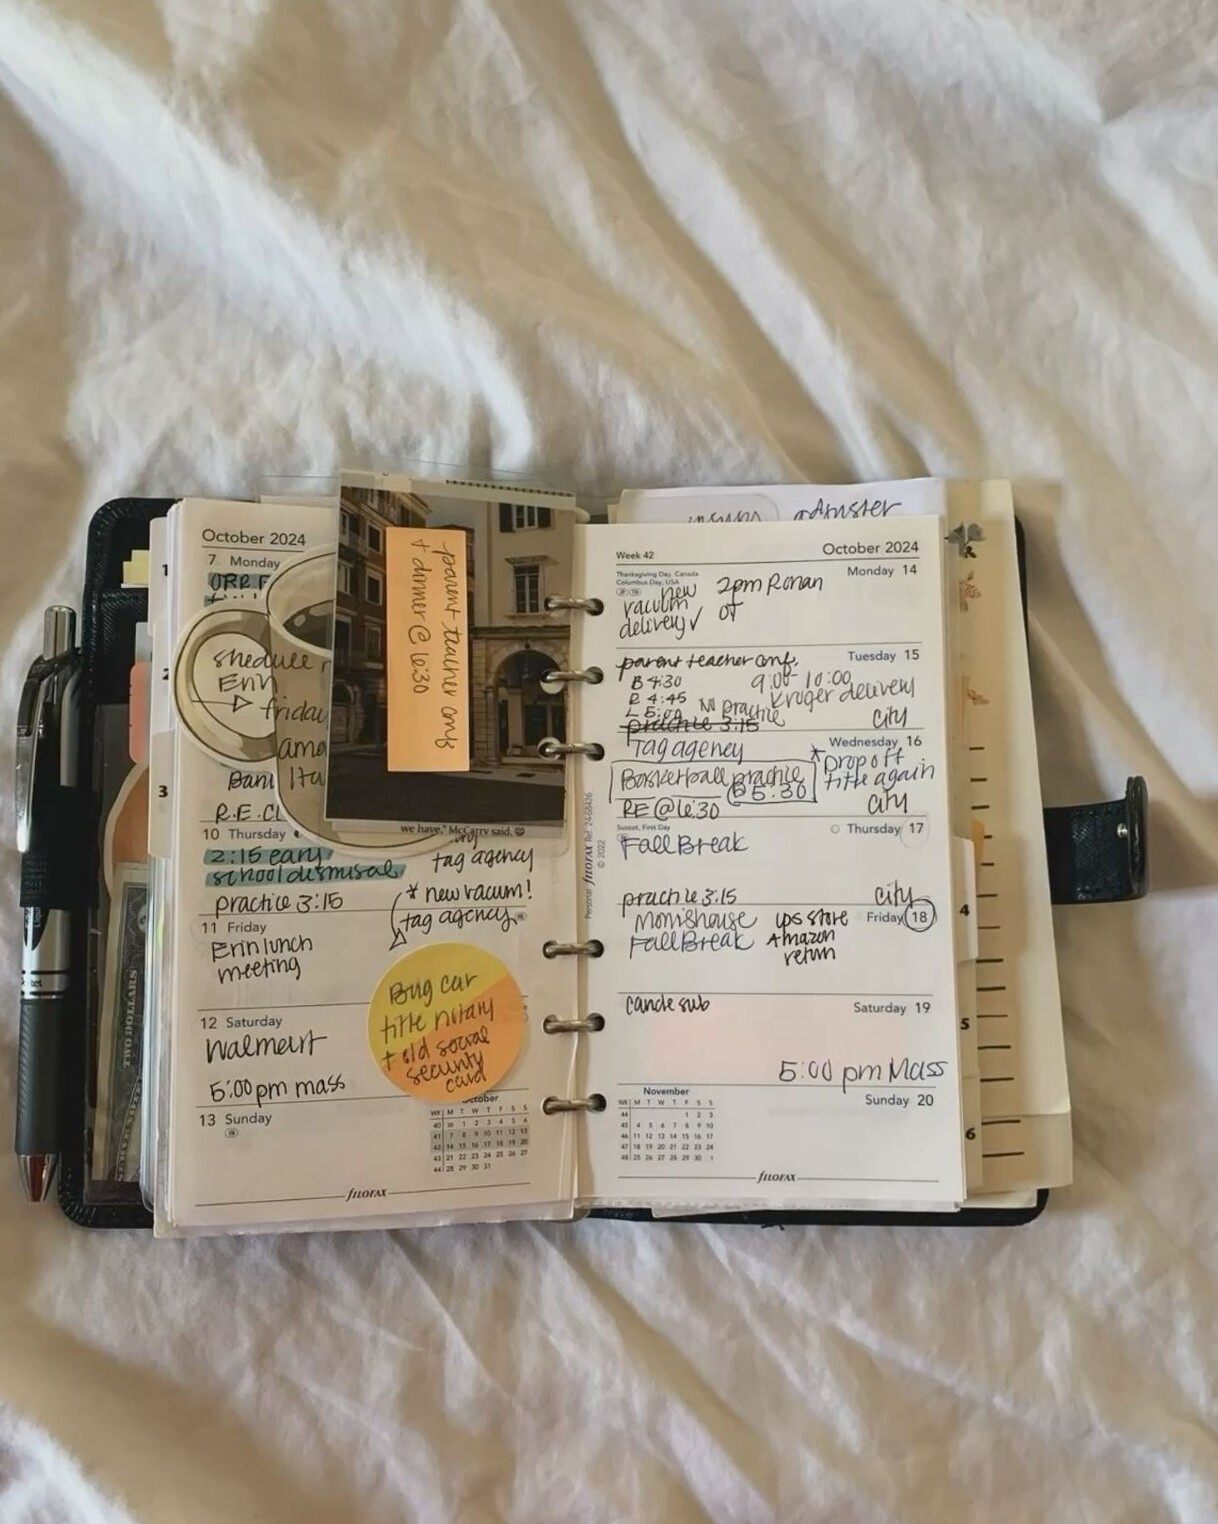 October 2024
7 Monday
shedule
Erin
friday
R.E.
10 Thursday
2:15 early
school dismisal
practice 3:15
11 Friday
Erin lunch
meeting
12 Saturday
Walmart
5:00pm mass
13 Sunday
parent teacher conf
+ dinner @ 6:30
we have." McCarry said.
tag agency
* new vacum!
tag agency
Bug car
title notary
+ old social
security
card
October
WK M T W T F S S
40 30 1 2 3 4 5 6
41 7 8 9 10 11 12 13
42 14 15 16 17 18 19 20
43 21 22 23 24 25 26 27
44 28 29 30 31
FILOFAX
TWO DOLLARS
1
2
3
adjuster
Week 42
October 2024
Thanksgiving Day, Canada
Columbus Day, USA
Monday 14
new
vacuum
delivery ✓
2pm Ronan
OT
Tuesday 15
parent teacher conf.
B 4:30
R 4:45
L 5:00
9:00-10:00
Kroger delivery
NO practice
practice 3:15
city
Wednesday 16
Tag agency
Basketball practice
B 5:30
RE @ 6:30
* Drop off
title again
city
Succot, First Day
Thursday 17
Fall Break
practice 3:15
city
Friday 18
Mom's house
Fall Break
ups store
Amazon
return
Saturday 19
cande sub
5:00 pm Mass
Sunday 20
November
WK M T W T F S S
44 1 2 3
45 4 5 6 7 8 9 10
46 11 12 13 14 15 16 17
47 18 19 20 21 22 23 24
48 25 26 27 28 29 30 1
FILOFAX
Personal FILOFAX Ref. 24-68426
© 2022
4
5
6